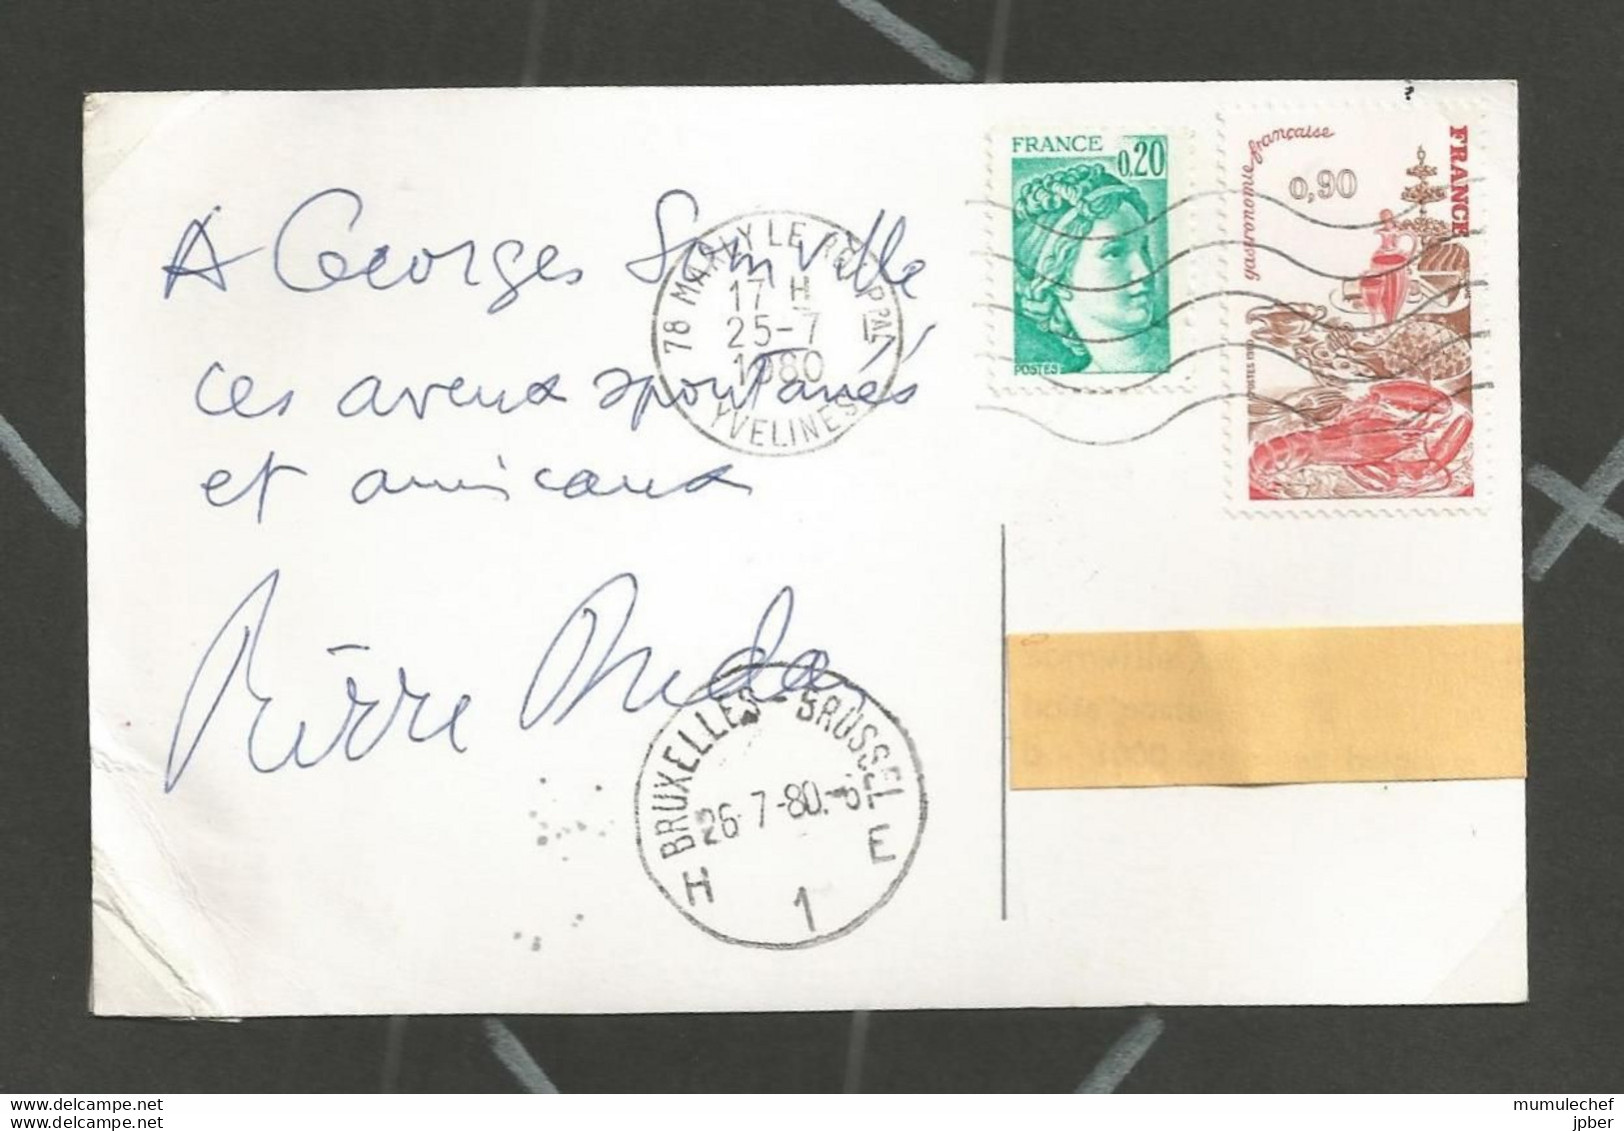 A Georges Somville
ces aveux spontanés
et amicaux
Pierre
78 MARLY LE ROI PPAL
17 H
25-7
1980
YVELINES
FRANCE
0,20
POSTES
gastronomie française
0,90
FRANCE
POSTES
BRUXELLES - BRUSSEL
26-7-80
H 1 E
www.delcampe.net
mumulechef
jpber